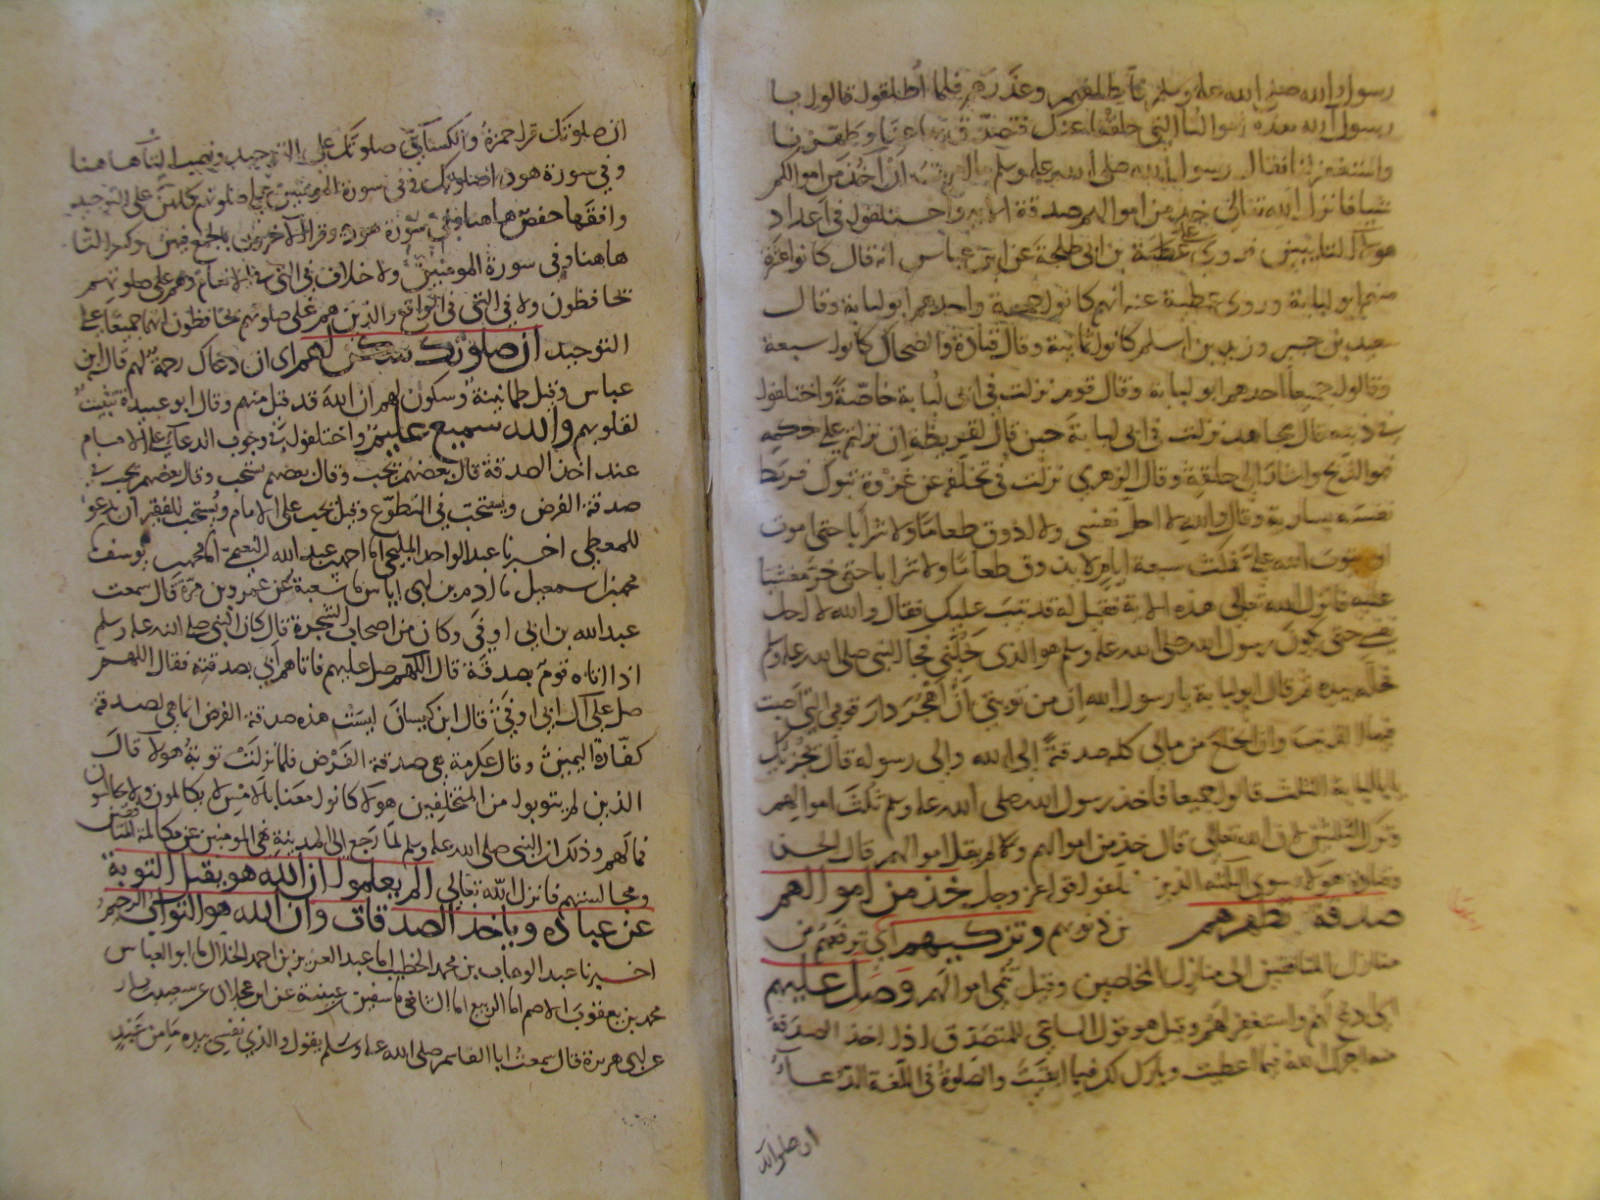 رسول الله صلى الله عليه وسلم بأن يطلقهم وعذرهم فلما اطلقوا قالوا يا
رسول الله هذه اموالنا التي خلفتنا عنك فتصدق بها عنا وطهرنا
واستغفر لنا فقال رسول الله صلى الله عليه وسلم ما امرت ان آخذ من اموالكم
شيا فانزل الله تعالى خذ من اموالهم صدقة الاية واختلفوا في اعداد
هولاء التائبين فروى علي بن ابي طلحة عن ابن عباس انه قال كانوا عشرة
منهم ابو لبابة وروى عطية عنه انهم كانوا خمسة واحدهم ابو لبابة وقال
سعيد بن جبير وزيد بن اسلم كانوا ثمانية وقال قتادة والضحاك كانوا سبعة
وقالوا جميعا احدهم ابو لبابة وقال قوم نزلت في ابي لبابة خاصة واختلفوا
في ذنبه قال مجاهد نزلت في ابي لبابة حين قال لقريظة ان نزلتم على حكمه
فهو الذبح واشار الى حلقه وقال الزهري نزلت في تخلفه عن غزوة تبوك فربط
نفسه بسارية وقال والله لا احل نفسي ولا اذوق طعاما ولا شرابا حتى اموت
او يتوب الله علي فمكث سبعة ايام لا يذوق طعاما ولا شرابا حتى خر مغشيا
عليه فانزل الله تعالى هذه الاية فقيل له قد تيب عليك فقال والله لا احل
نفسي حتى يكون رسول الله صلى الله عليه وسلم هو الذي يحلني فجا النبي صلى الله عليه وسلم
فحله بيده ثم قال ابو لبابة يا رسول الله ان من توبتي ان اهجر دار قومي التي اصبت
فيها الذنب وان انخلع من مالي كله صدقة الى الله والى رسوله قال يجزيك
يا ابا لبابة الثلث قالوا جميعا فاخذ رسول الله صلى الله عليه وسلم ثلث اموالهم
وترك الثلثين لان الله تعالى قال خذ من اموالهم ولم يقل اموالهم قال الحسن
وقتادة هولاء سوى الثلثة الذين خلفوا قوله عز وجل خذ من اموالهم
صدقة تطهرهم من ذنوبهم وتزكيهم اي ترفعهم من
منازل المنافقين الى منازل المخلصين وقيل تنمي اموالهم وصل عليهم
اي ادع لهم واستغفر لهم وقيل هو قول الساعي للمتصدق اذا اخذ الصدقة
منه اجرك الله فيما اعطيت وبارك لك فيما ابقيت والصلوة في اللغة الدعاء
ان صلواتك
ان صلوتك قرا حمزة والكسائي صلوتك على التوحيد ونصب التا هاهنا
وفي سورة هود اصلوتك وفي سورة المومنين على صلوتهم كلهن على التوحيد
وافقها حفص هاهنا وفي سورة هود وقرا الاخرون بالجمع فيهن وكسر التا
هاهنا وفي سورة المومنين ولا خلاف في التي في الانعام وهم على صلوتهم
يحافظون ولا في التي في الواقع والذين هم على صلوتهم يحافظون انهما جميعا على
التوحيد ان صلوتك سكن لهم اي ان دعاك رحمة لهم قال ابن
عباس وقيل طمانينة وسكون لهم ان الله قد قبل منهم وقال ابو عبيدة تثبيت
لقلوبهم والله سميع عليم واختلفوا في وجوب الدعا على الامام
عند اخذ الصدقة قال بعضهم يجب وقال بعضهم يستحب وقال بعضهم يجب في
صدقة الفرض ويستحب في التطوع وقيل يجب على الامام ويستحب للفقير ان يدعو
للمعطي اخبرنا عبد الواحد المليحي انا احمد بن عبد الله النعيمي انا محمد بن يوسف
محمد بن اسمعيل نا ادم بن ابي اياس نا شعبة عن عمرو بن مرة قال سمعت
عبد الله بن ابي اوفى وكان من اصحاب الشجرة قال كان النبي صلى الله عليه وسلم
اذا اتاه قوم بصدقة قال اللهم صل عليهم فاتاهم ابي بصدقته فقال اللهم
صل على آل ابي اوفى قال ابن كيسان ليست هذه صدقة الفرض انما هي لصدقة
كفارة اليمين وقال عكرمة هي صدقة الفرض فلما نزلت توبة هولاء قال
الذين لم يتوبوا من المتخلفين هولاء كانوا معنا بالامس لا يكالمون ولا يجالسون
فما لهم وذلك ان النبي صلى الله عليه وسلم لما رجع الى المدينة نهى المومنين عن مكالمة المنافقين
ومجالستهم فانزل الله تعالى الم يعلموا ان الله هو يقبل التوبة
عن عباده وياخذ الصدقات وان الله هو التواب الرحيم
اخبرنا عبد الوهاب بن محمد الخطيب انا عبد العزيز بن احمد الخلال نا ابو العباس
محمد بن يعقوب الاصم انا الربيع انا الشافعي نا سفين بن عيينة عن ابن عجلان عن سعيد بن يسار
عن ابي هريرة قال سمعت ابا القاسم صلى الله عليه وسلم يقول والذي نفسي بيده ما من عبد